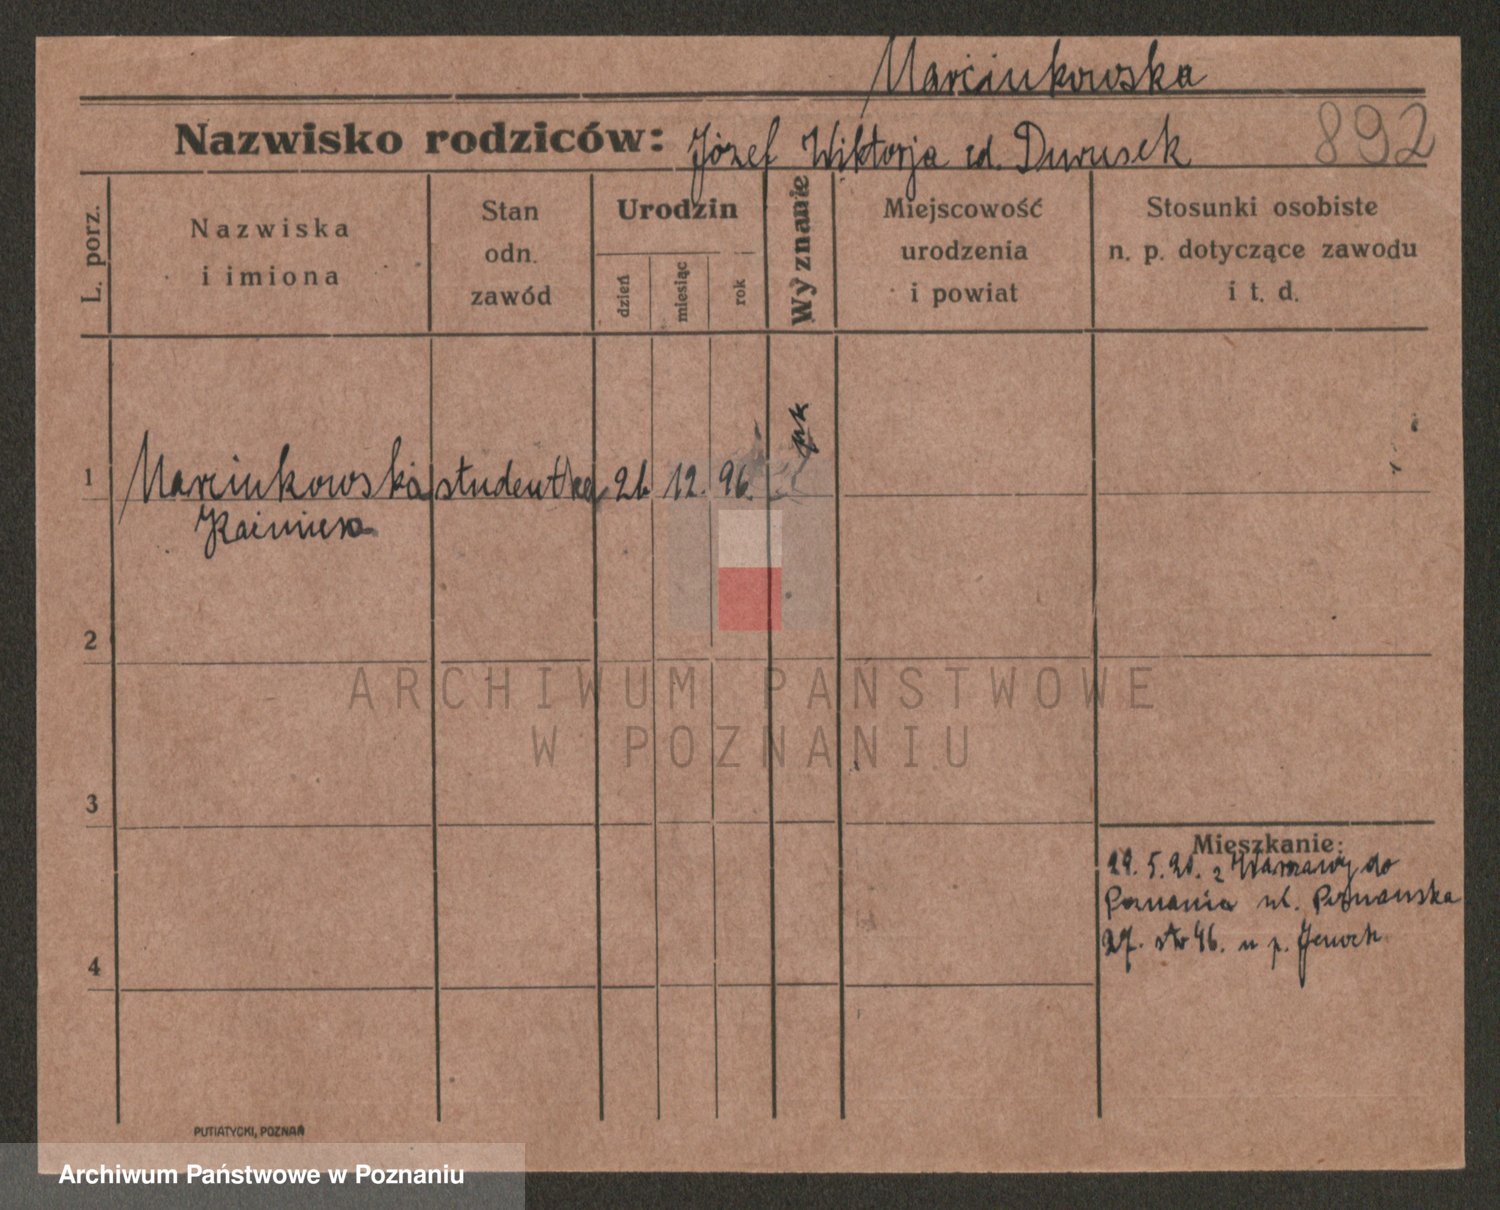 Marcinkowska
Nazwisko rodziców: Józef Wiktorja
892
L. porz.
Nazwiska
i imiona
Stan
odn.
zawód
Urodzin
dzień
miesiąc
rok
Wyznanie
Miejscowość
urodzenia
i powiat
Stosunki osobiste
n. p. dotyczące zawodu
i t. d.
1
Marcinkowska studentka 26. 12. 96.
2
ARCHIWUM PAŃSTWOWE
W POZNANIU
3
Mieszkanie:
29. 5. 20. z Warszawy do
Poznania ul. Poznanska
27. str 46. u p.
4
PUTIATYCKI, POZNAŃ
Archiwum Państwowe w Poznaniu